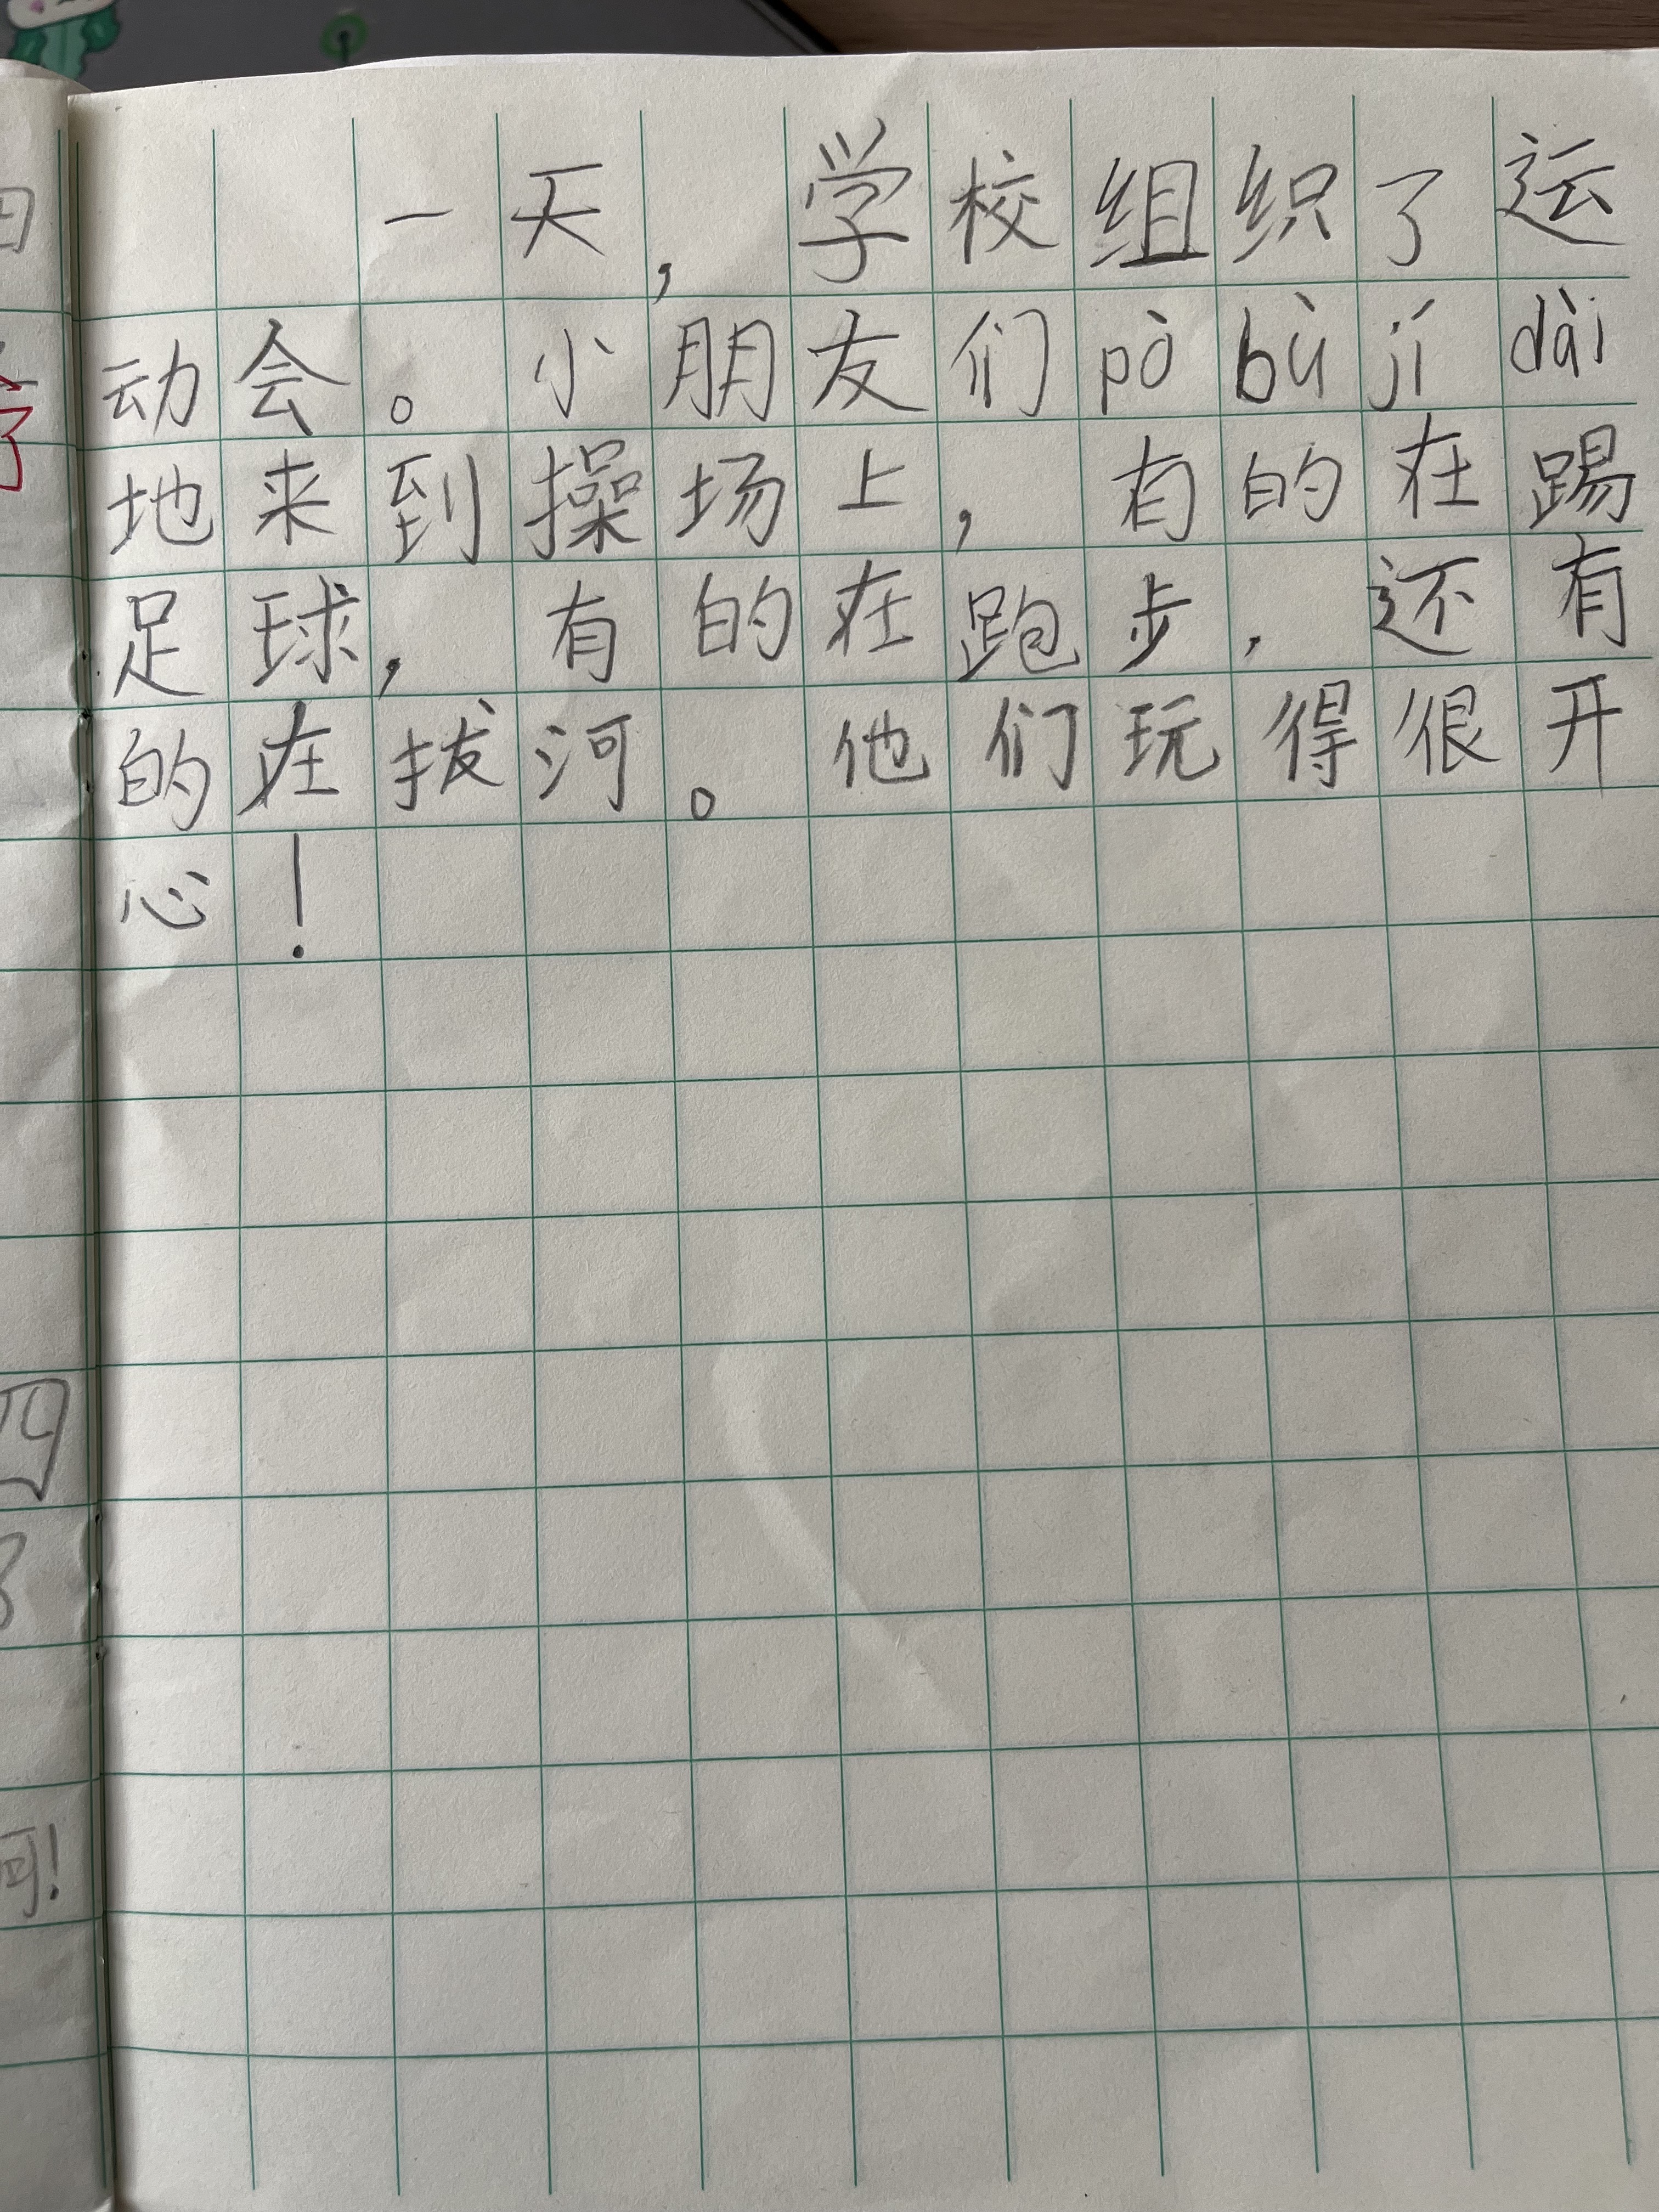 一天，学校组织了运
动会。小朋友们pò bù jí dài
地来到操场上，有的在踢
足球，有的在跑步，还有
的在拔河。他们玩得很开
心！